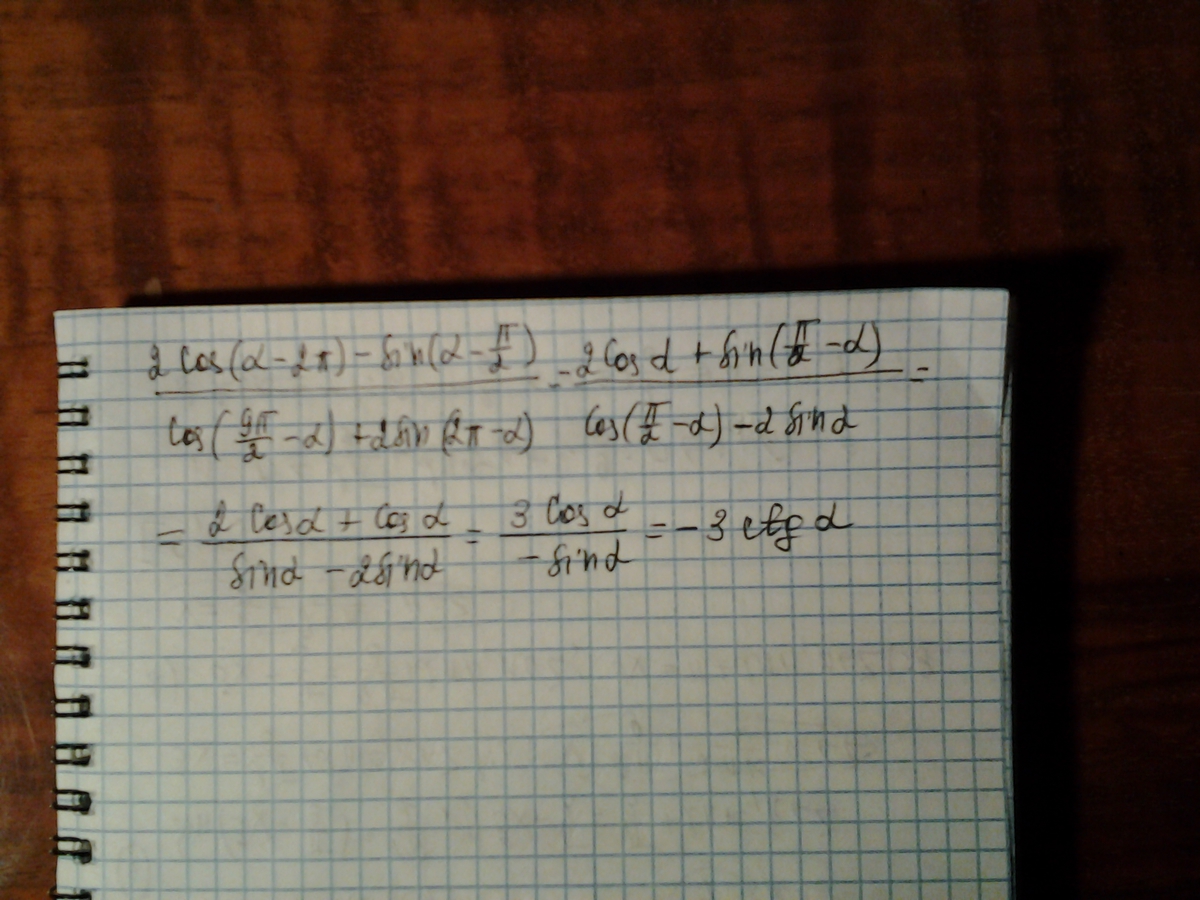 2 cos(α - 2π) - sin(α - π/2) / cos(9π/2 - α) + 2 sin(2π - α) = 2 cos α + sin(π/2 - α) / cos(π/2 - α) - 2 sin α =
= 2 cos α + cos α / sin α - 2 sin α = 3 cos α / - sin α = - 3 ctg α